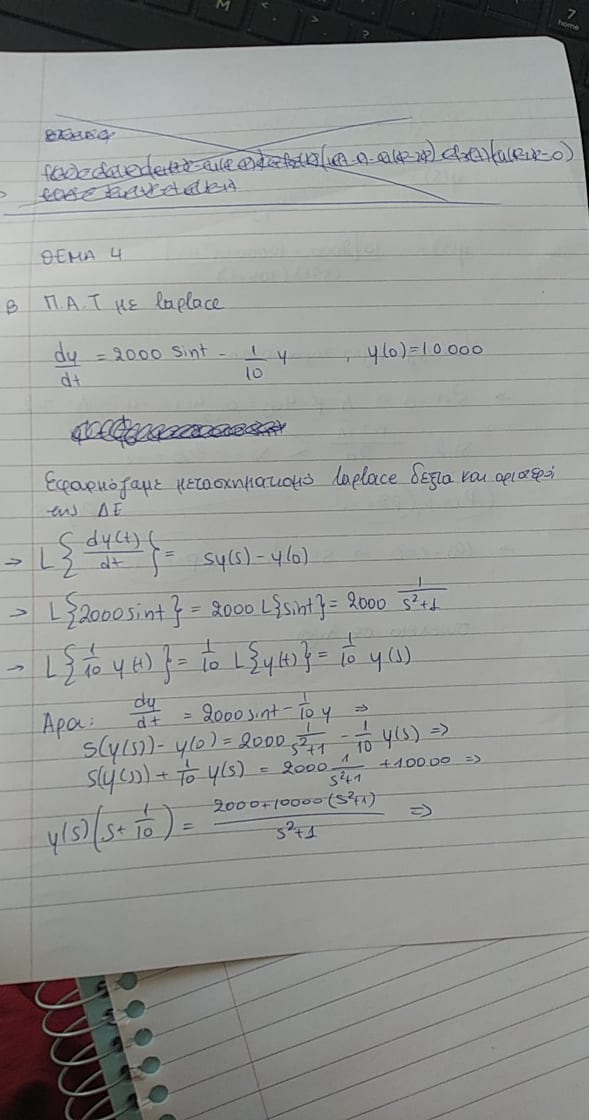 ΘΕΜΑ 4
Β Π.Α.Τ με laplace
dy/dt = 2000 sint - 1/10 y , y(0)=10.000
Εφαρμόζαμε μετασχηματισμό laplace δεξια και αριστερά
της ΔΕ
→ L{dy(t)/dt} = sy(s) - y(0)
→ L{2000sint} = 2000 L{sint} = 2000 1/s²+1
→ L{1/10 y(t)} = 1/10 L{y(t)} = 1/10 y(s)
Αρα: dy/dt = 2000sint - 1/10 y ⇒
s(y(s)) - y(0) = 2000 1/s²+1 - 1/10 y(s) ⇒
s(y(s)) + 1/10 y(s) = 2000 1/s²+1 + 10000 ⇒
y(s)(s+ 1/10) = 2000+10000(s²+1)/s²+1 ⇒
7
home
M
?